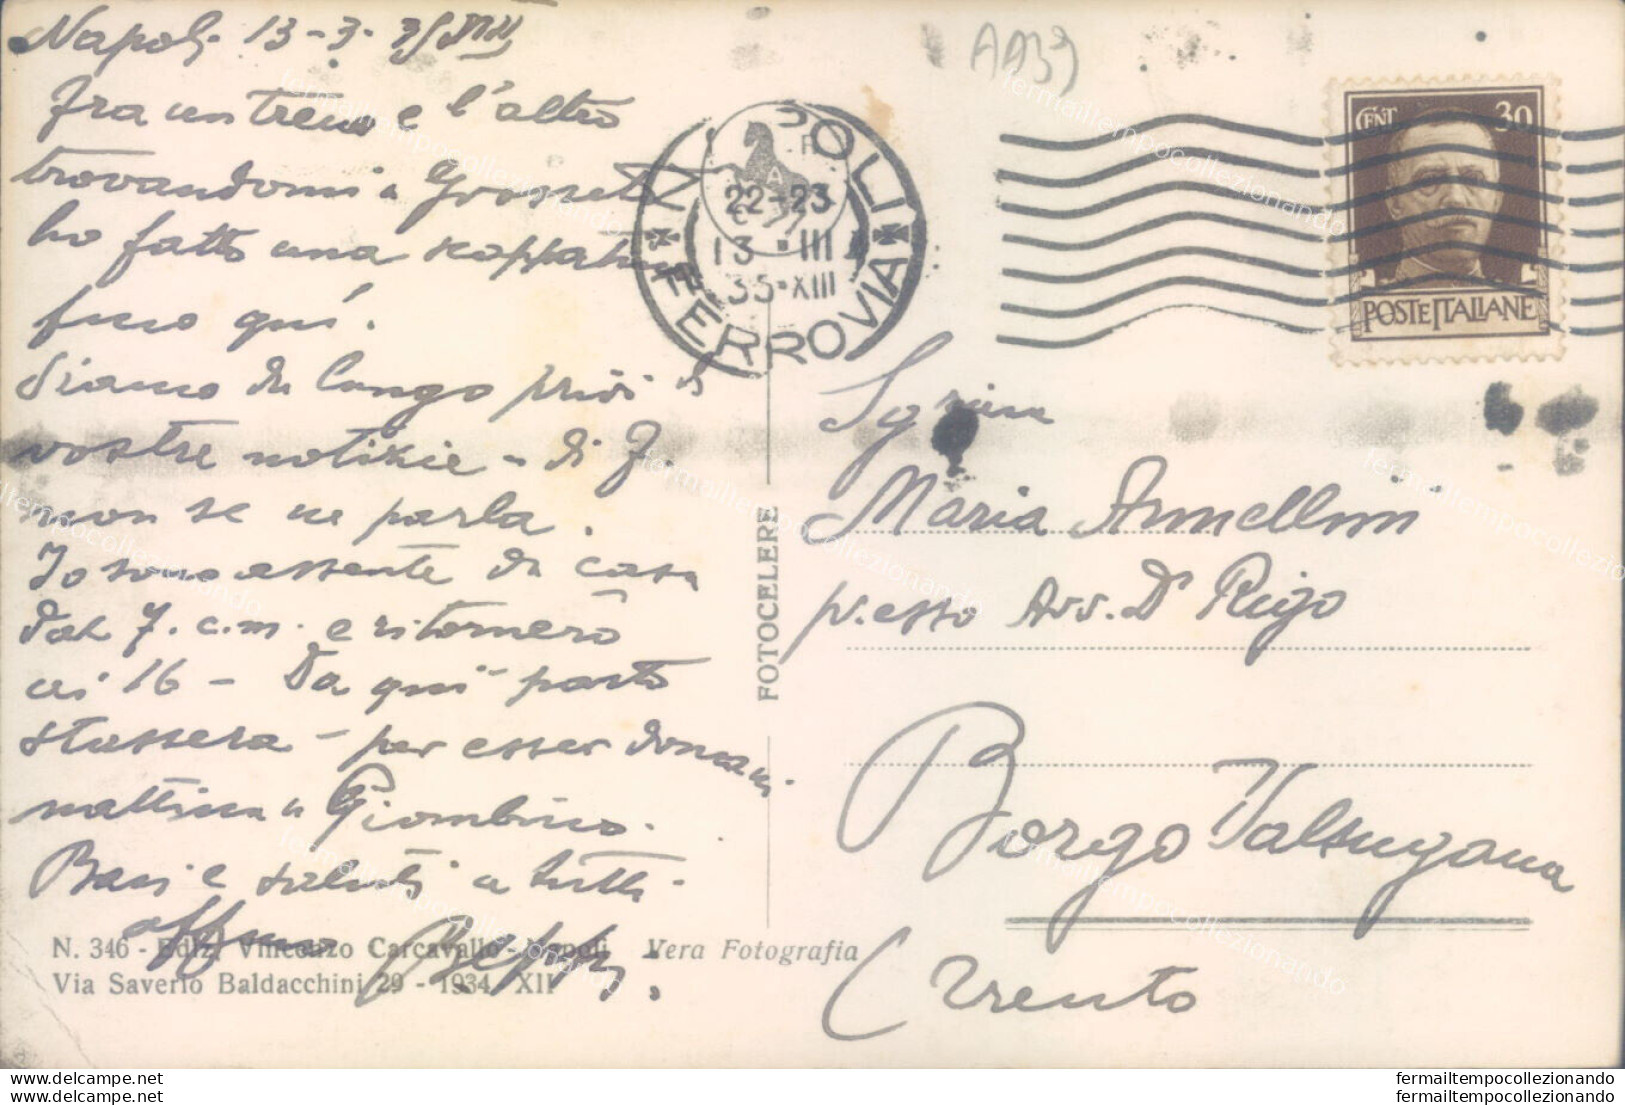 Napoli 13-3-35 XIII
Fra un treno e l'altro
trovandomi a Grosseto
ho fatto una scappata
fino quì.
Siamo da lungo privi di
vostre notizie - di J.
non se ne parla.
Io sono assente da casa
dal 7. c.m. e ritornerò
il 16 - Da quì parto
stassera - per esser domani
mattina a Piombino.
Baci e saluti a tutti.
affmo
N. 346 - Ediz. Vincenzo Carcavallo - Napoli Vera Fotografia
Via Saverio Baldacchini 29 - 1934 - XII
FOTOCELERE
AA39
NAPOLI
22-23
13 III
35-XIII
FERROVIA
CENT 30
POSTE ITALIANE
Sig.rina
Maria Armellini
presso Avv. Dr Rigo
Borgo Valsugana
(Trento
fermailtempocollezionando
fermailtempocollezionando
www.delcampe.net
www.delcampe.net
fermailtempocollezionando
fermailtempocollezionando